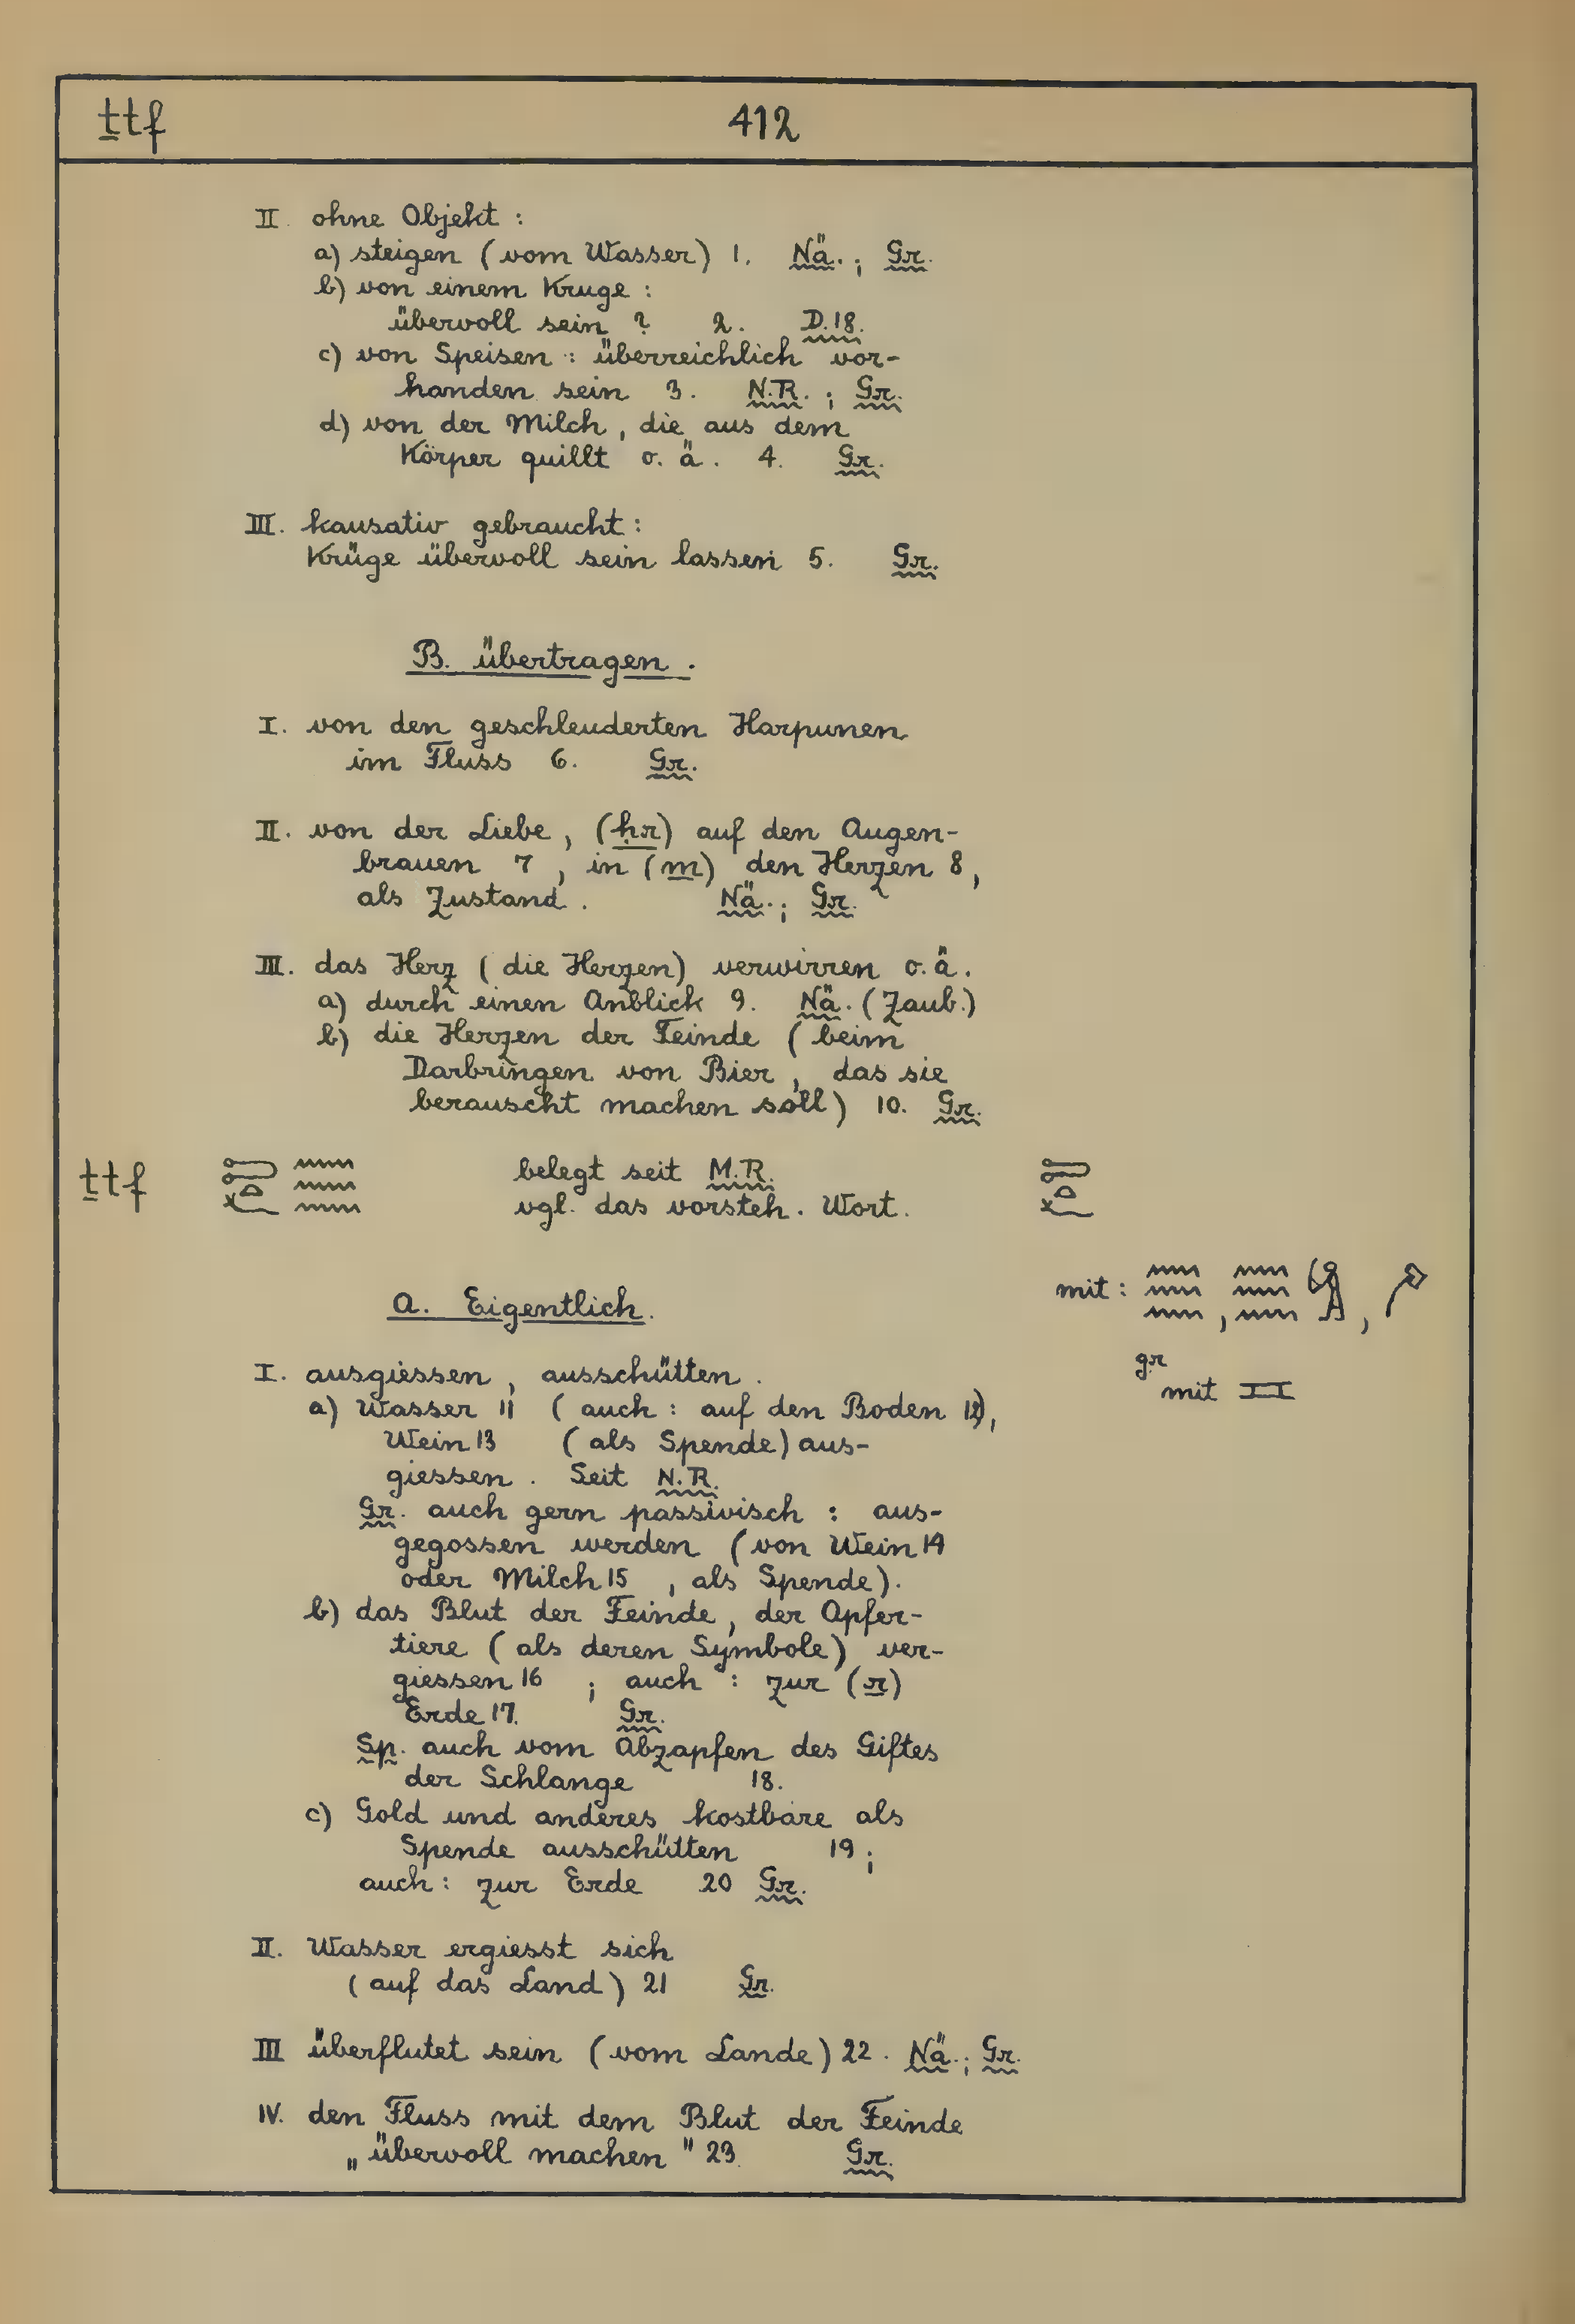 ṯtf 412
II. ohne Objekt :
a) steigen (vom Wasser) 1. Nä. ; Gr.
b) von einem Kruge :
übervoll sein ? 2. D.18.
c) von Speisen : überreichlich vor-
handen sein 3. N.R. ; Gr.
d) von der Milch, die aus dem
Körper quillt o. ä. 4. Gr.
III. kausativ gebraucht :
Krüge übervoll sein lassen 5. Gr.
B. übertragen.
I. von den geschleuderten Harpunen
im Fluss 6. Gr.
II. von der Liebe, (ḥr) auf den Augen-
brauen 7, in (m) den Herzen 8,
als Zustand. Nä. ; Gr.
III. das Herz (die Herzen) verwirren o. ä.
a) durch einen Anblick 9. Nä. (Zaub.)
b) die Herzen der Feinde (beim
Darbringen von Bier, das sie
berauscht machen soll) 10. Gr.
ṯtf belegt seit M.R.
vgl. das vorsteh. Wort.
mit : , ,
gr
mit
A. Eigentlich.
I. ausgiessen, ausschütten.
a) Wasser 11 (auch : auf den Boden 12),
Wein 13 (als Spende) aus-
giessen. Seit N.R.
Gr. auch gern passivisch : aus-
gegossen werden (von Wein 14
oder Milch 15, als Spende).
b) das Blut der Feinde, der Opfer-
tiere (als deren Symbole) ver-
giessen 16 ; auch : zur (r)
Erde 17. Gr.
Sp. auch vom Abzapfen des Giftes
der Schlange 18.
c) Gold und anderes kostbare als
Spende ausschütten 19 ;
auch : zur Erde 20 Gr.
II. Wasser ergiesst sich
(auf das Land) 21 Gr.
III überflutet sein (vom Lande) 22. Nä. ; Gr.
IV. den Fluss mit dem Blut der Feinde
„übervoll machen" 23. Gr.